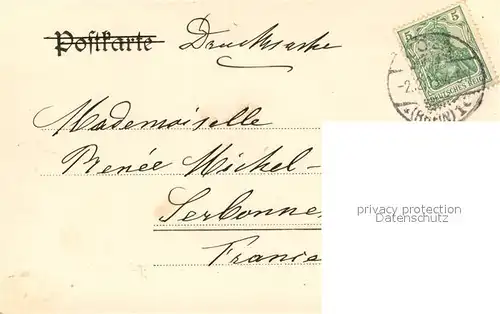 Postkarte Drucksache
5 5
DEUTSCHES REICH
(RHEIN)
Mademoiselle
Renée Michel-
Serbonne
France
privacy protection
Datenschutz